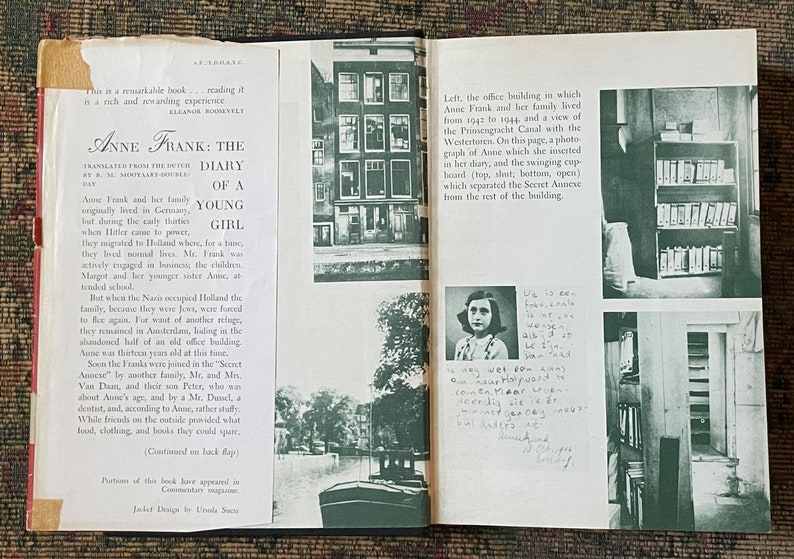 A.F.:T.D.O.A.Y.G.
This is a remarkable book . . . reading it
is a rich and rewarding experience
ELEANOR ROOSEVELT
ANNE FRANK: THE
DIARY
OF A
YOUNG
GIRL
TRANSLATED FROM THE DUTCH
BY B. M. MOOYAART-DOUBLE-
DAY
Anne Frank and her family
originally lived in Germany,
but during the early thirties
when Hitler came to power,
they migrated to Holland where, for a time,
they lived normal lives. Mr. Frank was
actively engaged in business; the children,
Margot and her younger sister Anne, at-
tended school.
But when the Nazis occupied Holland the
family, because they were Jews, were forced
to flee again. For want of another refuge,
they remained in Amsterdam, hiding in the
abandoned half of an old office building.
Anne was thirteen years old at this time.
Soon the Franks were joined in the "Secret
Annexe" by another family, Mr. and Mrs.
Van Daan, and their son Peter, who was
about Anne's age, and by a Mr. Dussel, a
dentist, and, according to Anne, rather stuffy.
While friends on the outside provided what
food, clothing, and books they could spare,
(Continued on back flap)
Portions of this book have appeared in
Commentary magazine.
Jacket Design by Ursula Suess
Left, the office building in which
Anne Frank and her family lived
from 1942 to 1944, and a view of
the Prinsengracht Canal with the
Westertoren. On this page, a photo-
graph of Anne which she inserted
in her diary, and the swinging cup-
board (top, shut; bottom, open)
which separated the Secret Annexe
from the rest of the building.
Dit is een
foto, zoals
ik me zou
wensen
altijd zo
te zijn.
Dan had
ik nog wel een kans
om naar Holywood te
komen. Maar tegen-
woordig zie ik er
jammer genoeg meest-
al anders uit
Annefrank